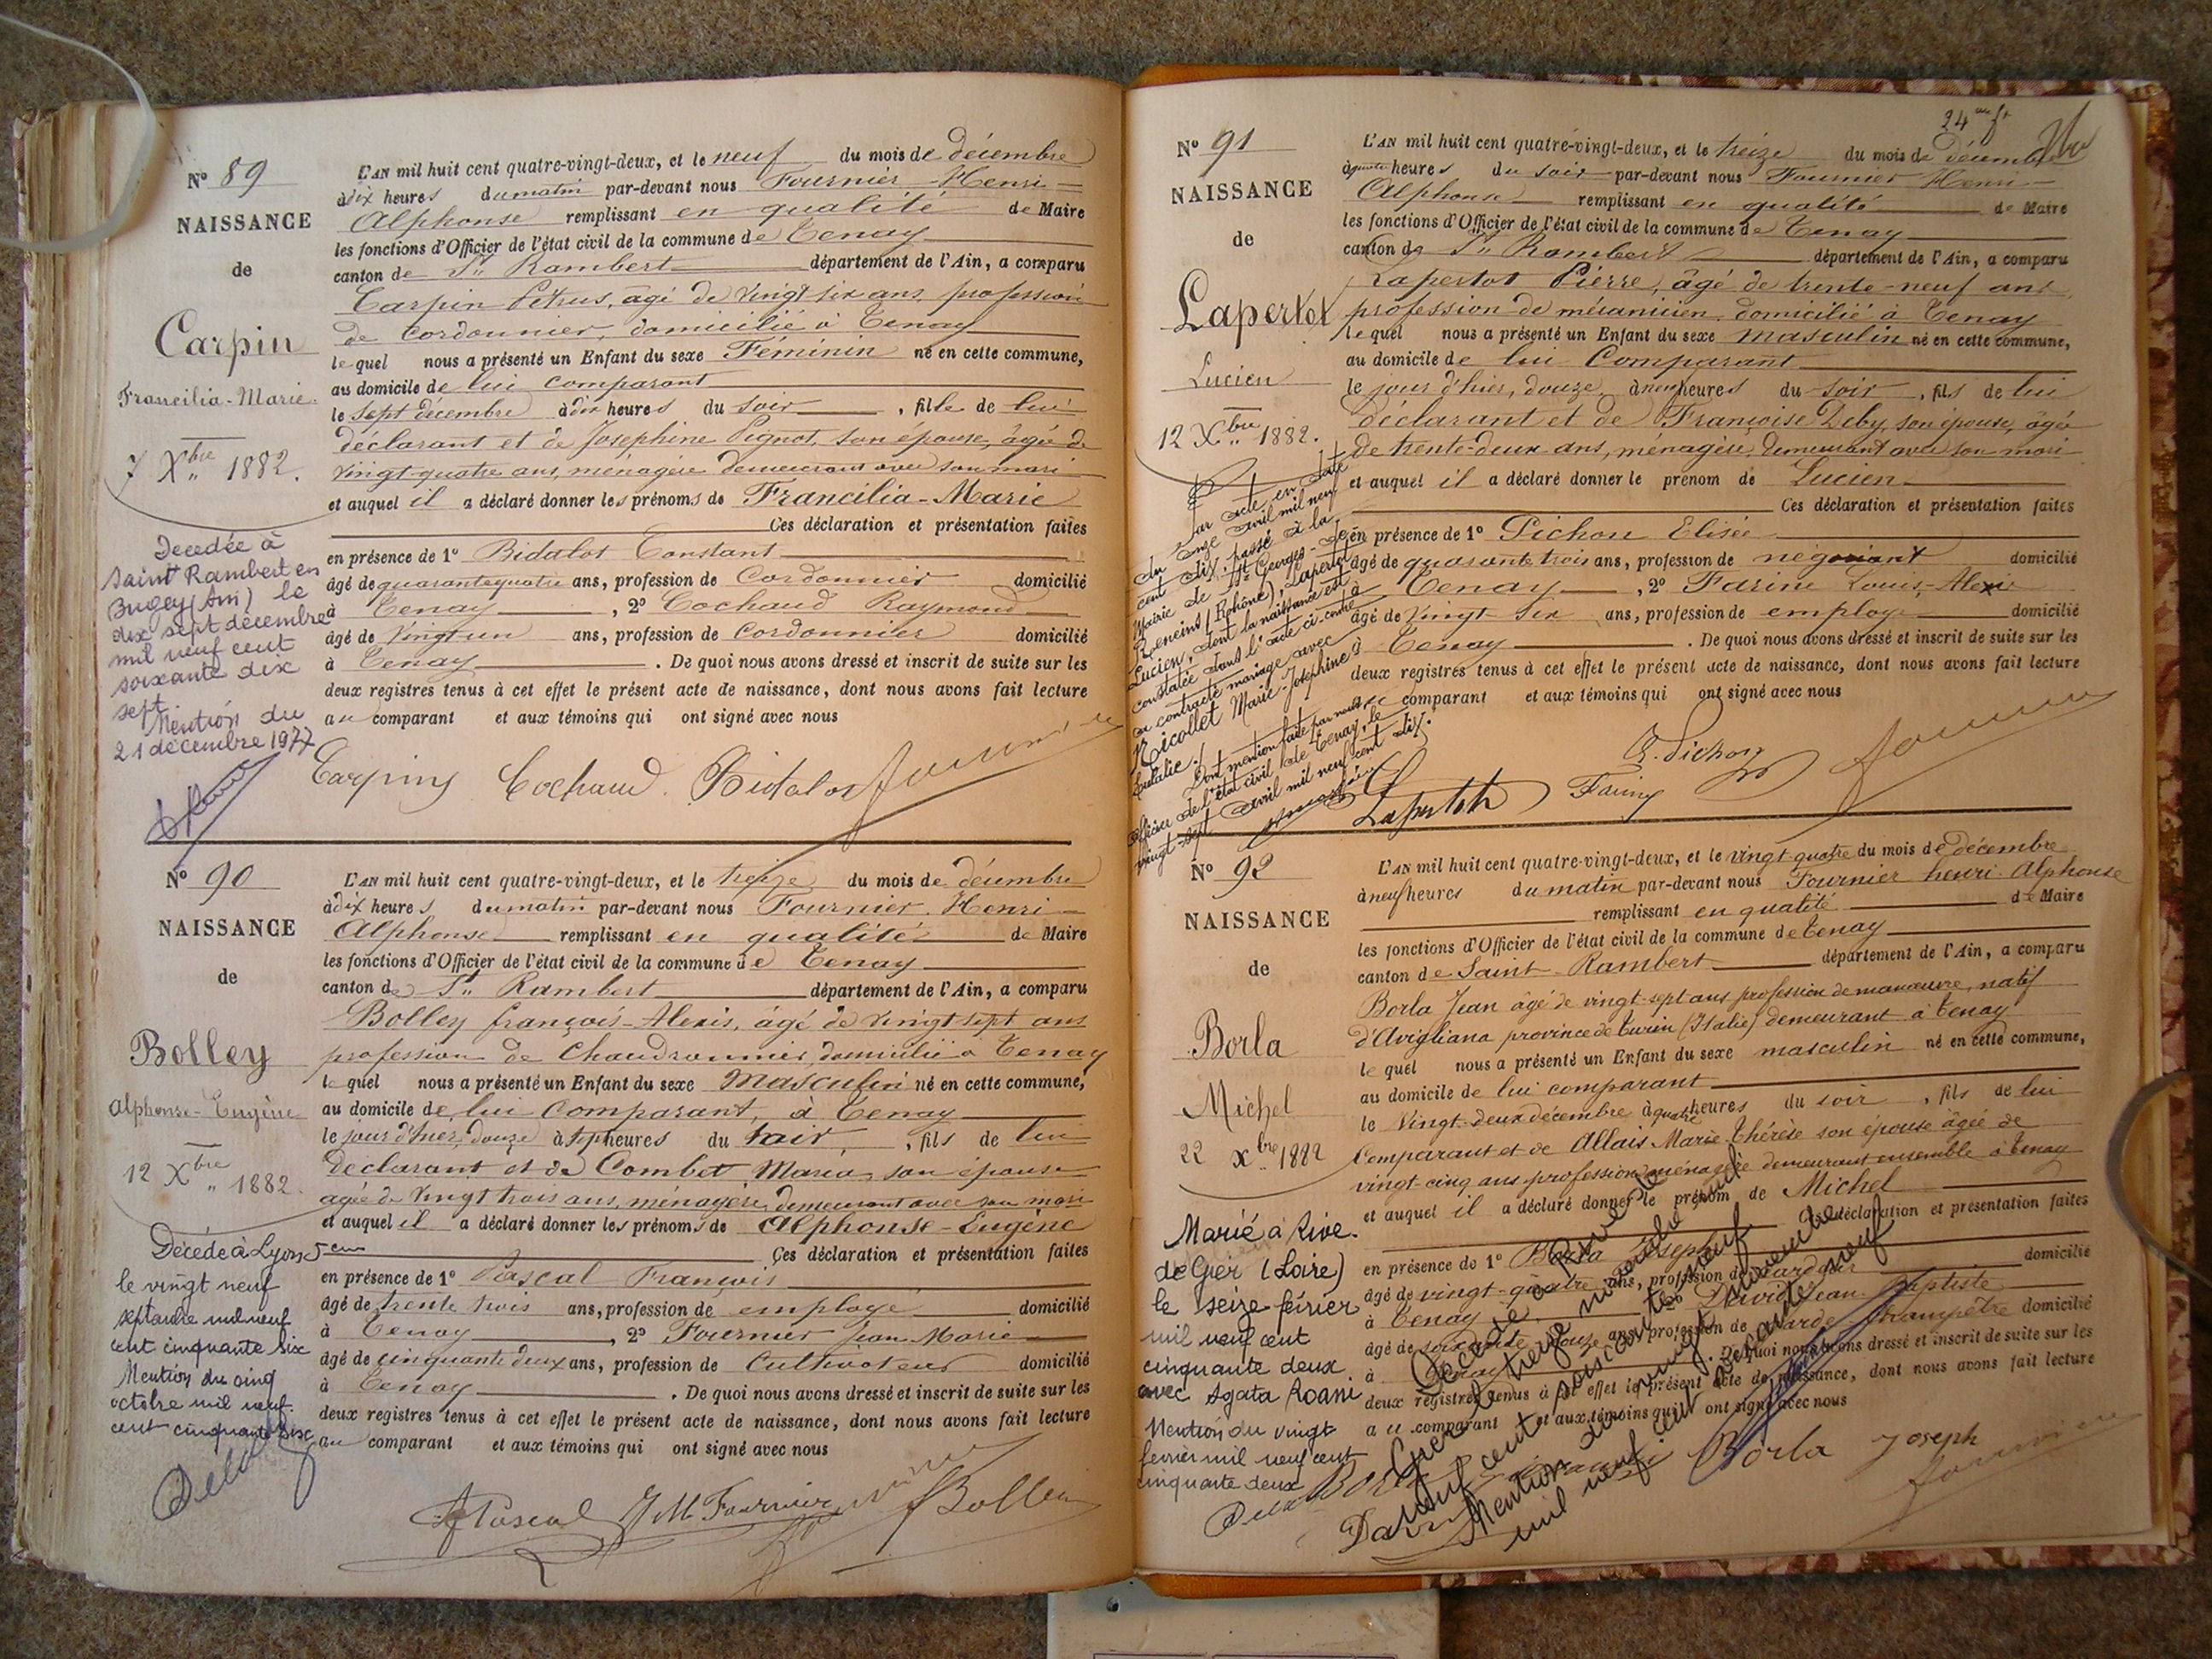 N° 89
NAISSANCE
de
Carpin
Francilia-Marie
7 Xbre 1882.
Décédée à
Saint Rambert en
Bugey (Ain) le
dix sept décembre
mil neuf cent
soixante dix
sept
Mention du
21 décembre 1977
L'AN mil huit cent quatre-vingt-deux, et le neuf du mois de décembre
à dix heures du matin par-devant nous Fournier Henri
Alphonse remplissant en qualité de Maire
les fonctions d'Officier de l'état civil de la commune de Tenay
canton de St Rambert département de l'Ain, a comparu
Carpin Pétrus, âgé de vingt six ans, profession
de cordonnier, domicilié à Tenay
lequel nous a présenté un Enfant du sexe Féminin né en cette commune,
au domicile de lui comparant
le sept décembre à dix heures du soir, fille de lui
déclarant et de Josephine Pignot, son épouse, âgée de
vingt quatre ans, ménagère demeurant avec son mari
et auquel il a déclaré donner les prénoms de Francilia-Marie
Ces déclaration et présentation faites
en présence de 1° Bidalot Constant
âgé de quarante quatre ans, profession de Cordonnier domicilié
à Tenay, 2° Cochaud Raymond
âgé de vingt un ans, profession de cordonnier domicilié
à Tenay. De quoi nous avons dressé et inscrit de suite sur les
deux registres tenus à cet effet le présent acte de naissance, dont nous avons fait lecture
au comparant et aux témoins qui ont signé avec nous
Carpin Cochaud Bidalot Fournier
N° 90
NAISSANCE
de
Bolley
Alphonse-Eugène
12 Xbre 1882.
Décédé à Lyon 5eme
le vingt neuf
septembre mil neuf
cent cinquante six
Mention du cinq
octobre mil neuf
cent cinquante six
L'AN mil huit cent quatre-vingt-deux, et le treize du mois de décembre
à dix heures du matin par-devant nous Fournier Henri
Alphonse remplissant en qualité de Maire
les fonctions d'Officier de l'état civil de la commune de Tenay
canton de St Rambert département de l'Ain, a comparu
Bolley françois-Alexis, âgé de vingt sept ans
profession de Chaudronnier, domicilié à Tenay
lequel nous a présenté un Enfant du sexe Masculin né en cette commune,
au domicile de lui Comparant, à Tenay
le jour d'hier, douze à sept heures du soir, fils de lui
déclarant et de Combet Maria, son épouse
agée de vingt trois ans, ménagère, demeurant avec son mari
et auquel il a déclaré donner les prénoms de Alphonse-Eugène
Ces déclaration et présentation faites
en présence de 1° Pascal François
âgé de trente trois ans, profession de employé domicilié
à Tenay, 2° Fournier Jean Marie
âgé de cinquante deux ans, profession de Cultivateur domicilié
à Tenay. De quoi nous avons dressé et inscrit de suite sur les
deux registres tenus à cet effet le présent acte de naissance, dont nous avons fait lecture
au comparant et aux témoins qui ont signé avec nous
F Pascal JM Fournier Fournier Bolley
N° 91
NAISSANCE
de
Lapertot
Lucien
12 Xbre 1882.
Par acte en date
du onze avril mil neuf
cent dix, passé à la
Mairie de St Georges-de-
Reneins (Rhône), Lapertot
Lucien, dont la naissance est
constatée dans l'acte ci-contre
a contracté mariage avec
Nicollet Marie-Josephine
Eulalie.
Dont mention faite par nous
officier de l'état civil de Tenay, le
vingt-sept avril mil neuf cent dix.
L'AN mil huit cent quatre-vingt-deux, et le treize du mois de décembre
à quatre heures du soir par-devant nous Fournier Henri
Alphonse remplissant en qualité de Maire
les fonctions d'Officier de l'état civil de la commune de Tenay
canton de St Rambert département de l'Ain, a comparu
Lapertot Pierre, âgé de trente-neuf ans,
profession de mécanicien domicilié à Tenay
lequel nous a présenté un Enfant du sexe masculin né en cette commune,
au domicile de lui Comparant
le jour d'hier, douze, à neuf heures du soir, fils de lui
déclarant et de Françoise Deby, son épouse, âgée
de trente-deux ans, ménagère, demeurant avec son mari
et auquel il a déclaré donner le prénom de Lucien
Ces déclaration et présentation faites
en présence de 1° Pichon Elisée
âgé de quarante trois ans, profession de négociant domicilié
à Tenay, 2° Farine Louis-Alexis
âgé de vingt six ans, profession de employé domicilié
à Tenay. De quoi nous avons dressé et inscrit de suite sur les
deux registres tenus à cet effet le présent acte de naissance, dont nous avons fait lecture
au comparant et aux témoins qui ont signé avec nous
Lapertot Farine E. Pichon Fournier
N° 92
NAISSANCE
de
Borla
Michel
22 Xbre 1882
Marié à Rive-
de Gier (Loire)
le seize février
mil neuf cent
cinquante deux
avec Agata Roani
Mention du vingt
février mil neuf cent
cinquante deux
L'AN mil huit cent quatre-vingt-deux, et le vingt quatre du mois de décembre
à neuf heures du matin par-devant nous Fournier henri Alphonse
remplissant en qualité de Maire
les fonctions d'Officier de l'état civil de la commune de Tenay
canton de Saint Rambert département de l'Ain, a comparu
Borla Jean âgé de vingt-sept ans profession de manœuvre, natif
d'Avigliana province de turin (Italie) demeurant à Tenay
lequel nous a présenté un Enfant du sexe masculin né en cette commune,
au domicile de lui comparant
le Vingt-deux décembre à quatre heures du soir, fils de lui
Comparant et de Allais Marie Thérèse son épouse âgée de
vingt-cinq ans profession ménagère demeurant ensemble à Tenay
et auquel il a déclaré donner le prénom de Michel
Ces déclaration et présentation faites
en présence de 1° Borla Joseph
âgé de vingt-quatre ans, profession de domicilié
à Tenay David Jean Baptiste
âgé de soixante ans, profession de garde champêtre domicilié
à Tenay. De quoi nous avons dressé et inscrit de suite sur les
deux registres tenus à cet effet le présent acte de naissance, dont nous avons fait lecture
au comparant et aux témoins qui ont signé avec nous
Borla Joseph
Fournier
Décédé à Rive de
Gier le treize novembre mil
neuf cent soixante neuf
Mention du vingt novembre
mil neuf cent soixante neuf